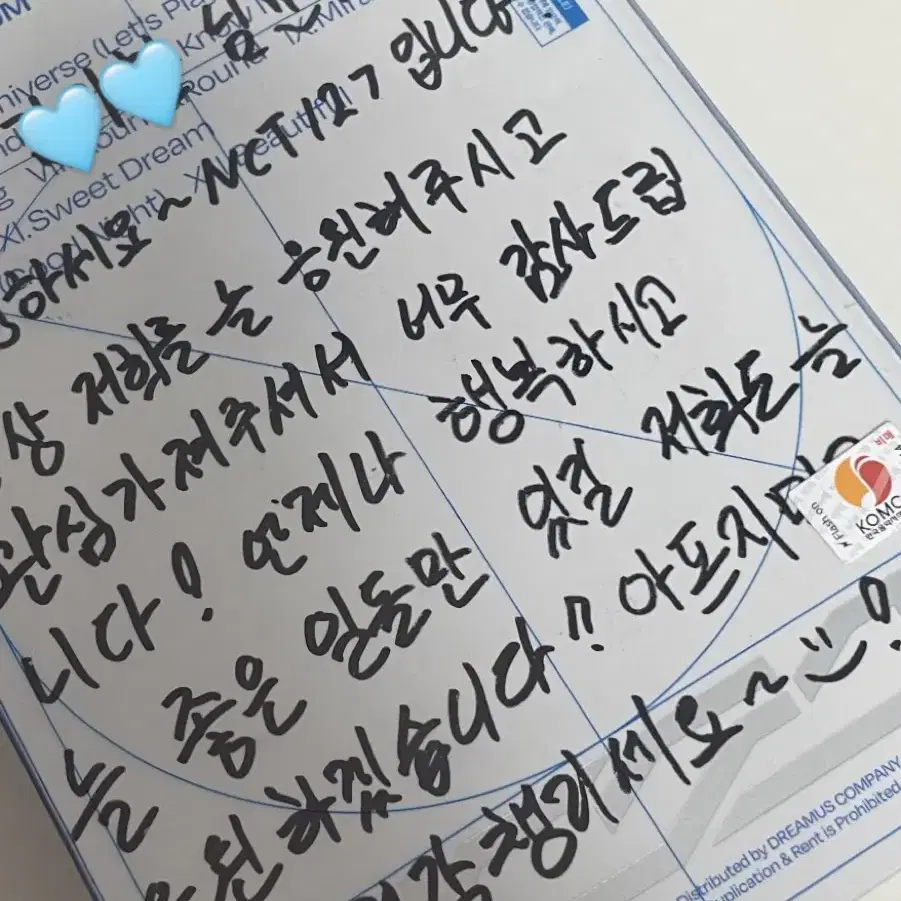 niverse (Let's Pla
Round
XI.Sweet Dream
Beautiful
Good Night)
~NCT127 입니다
하세요
상 저희를 늘 응원해주시고
관심가져주셔서 너무 감사드립
니다! 언제나 행복하시고
늘 좋은 일들만 있길 저희도 늘
응원하겠습니다!! 아프지
챙기세요~
Flash on
KOMC
Distributed by DREAMUS COMPANY
uplication & Rent is Prohibited